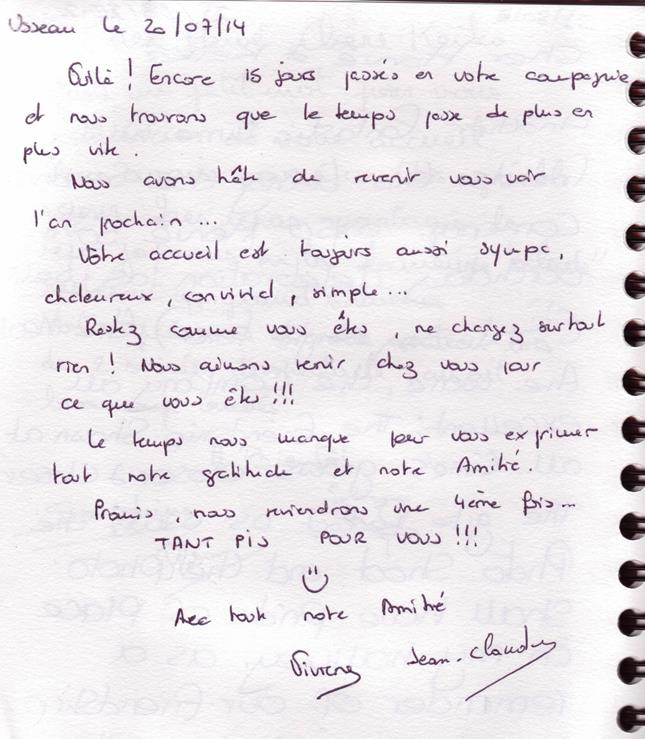 Usseau le 20/07/14
Voilà ! Encore 15 jours passés en votre compagnie
et nous trouvons que le temps passe de plus en
plus vite.
Nous avons hâte de revenir vous voir
l'an prochain...
Vôtre accueil est toujours aussi sympa,
chaleureux, convivial, simple...
Restez comme vous êtes, ne changez surtout
rien ! Nous aimons venir chez vous pour
ce que vous êtes !!!
Le temps nous manque pour vous exprimer
tout notre gratitude et notre Amitié.
Promis, nous reviendrons une 4ème fois...
TANT PIS POUR VOUS !!!
Avec toute notre Amitié
Viviane Jean-Claude